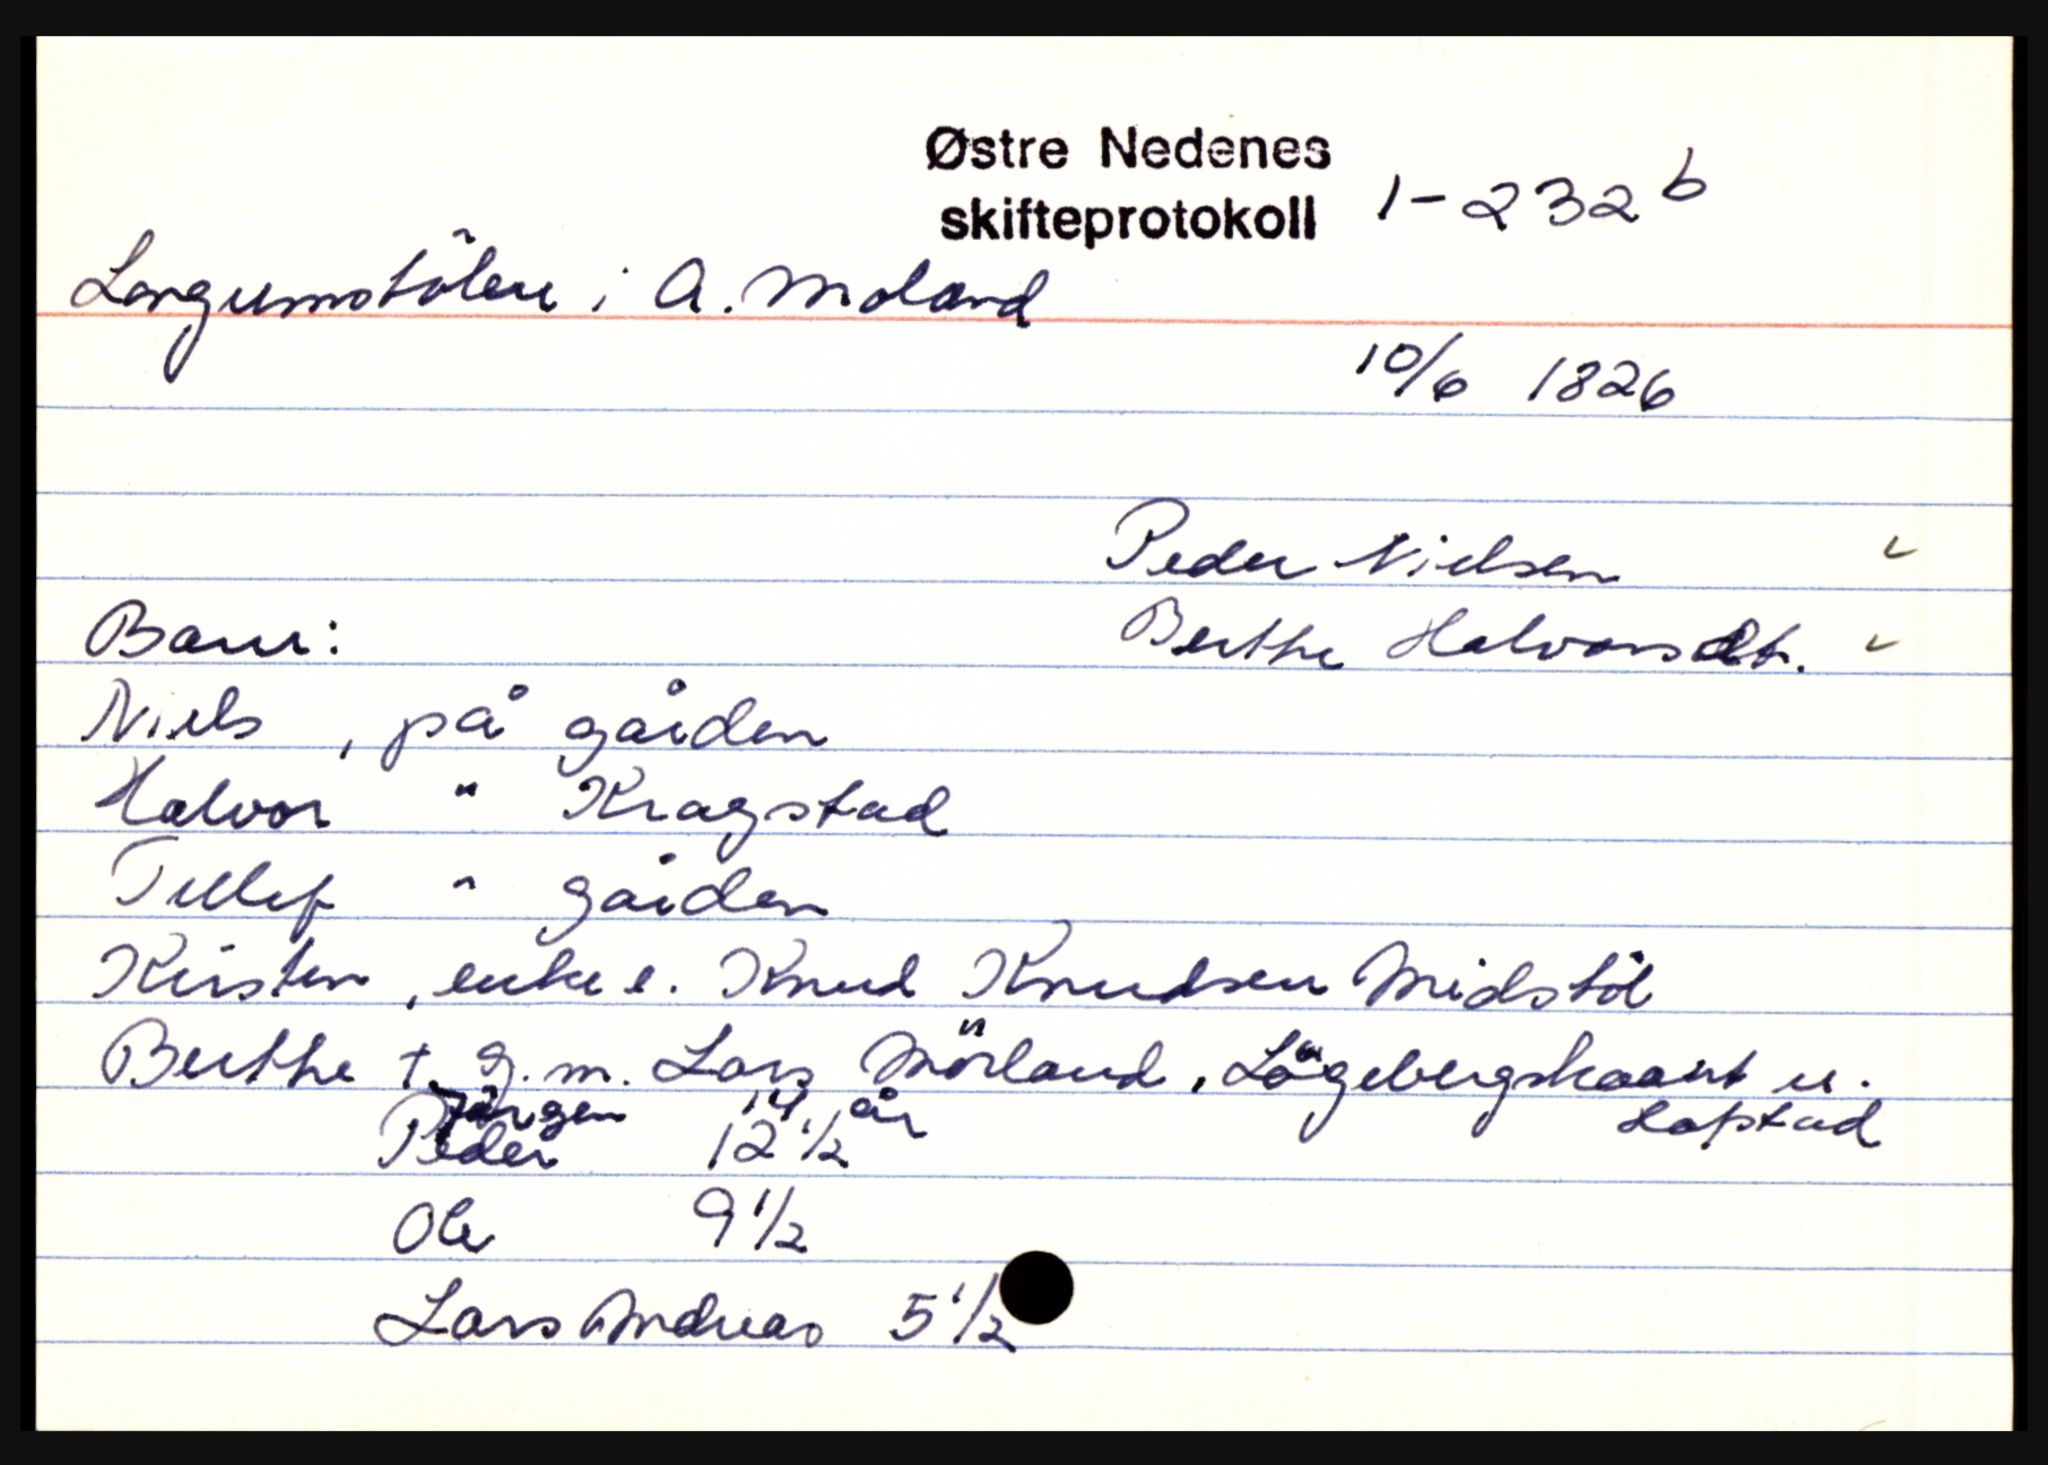 Østre Nedenes
skifteprotokoll 1-232 b
Longumstölen i A. Moland
10/6 1826
Peder Nielsen
Barn: Berthe Halvorsdt.
Niels , på gården
Halvor " Kragstad
Tellef " gården
Kirsten , enke e. Knud Knudsen Midstöl
Berthe + g. m. Lars Mörland, Lögebergskaaret u.
Lofstad
Jörgen 14 år
Peder 12 1/2
Ole 9 1/2
Lars Andreas 5 1/2